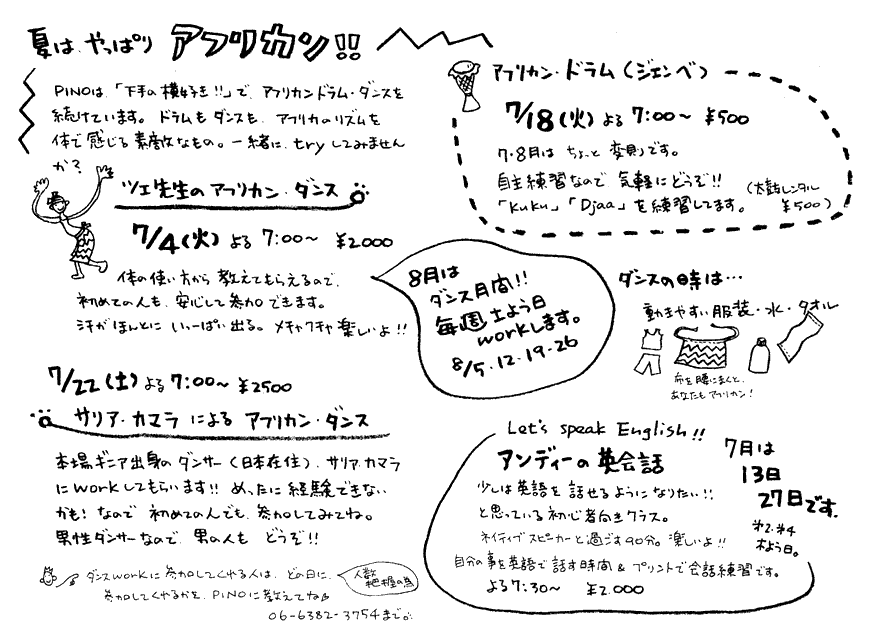 夏は、やっぱり アフリカン!!
PINOは、「下手の横好き!!」で、アフリカンドラム・ダンスを
続けています。ドラムもダンスも、アフリカのリズムを
体で感じる素敵なもの。一緒に、tryしてみません
か?
ツェ先生のアフリカン・ダンス
7/4(火) よる 7:00〜 ¥2000
体の使い方から教えてもらえるので、
初めての人も、安心して参加できます。
汗がほんとにいーっぱい出る。メチャクチャ楽しいよ!!
7/22(土) よる 7:00〜 ¥2500
サリア・カマラ による アフリカン・ダンス
本場ギニア出身のダンサー(日本在住)、サリア・カマラ
にworkしてもらいます!! めったに経験できない
かも! なので 初めての人でも、参加してみてね。
男性ダンサーなので、男の人も どうぞ!!
ダンスworkに参加してくれる人は、どの日に、
参加してくれるかを、PINOに教えてね
人数
把握の為
06-6382-3754まで。
アフリカン・ドラム(ジェンベ)
7/18(火) よる 7:00〜 ¥500
7・8月は ちょっと 変則です。
自主練習なので 気軽にどうぞ!!
「KuKu」「Djaa」を練習してます。
(太鼓レンタル
¥500)
8月は
ダンス月間!!
毎週土よう日
workします。
8/5・12・19・26
ダンスの時は…
動きやすい服装・水・タオル
布を腰にまくと、
あなたもアフリカン!
Let's speak English!!
アンディーの英会話
少しは英語を話せるようになりたい!!
と思っている初心者向きクラス。
ネイティブスピーカーと過ごす90分。楽しいよ!!
自分の事を英語で話す時間 & プリントで会話練習です。
よる7:30〜 ¥2.000
7月は
13日
27日です。
第2・第4
木よう日。